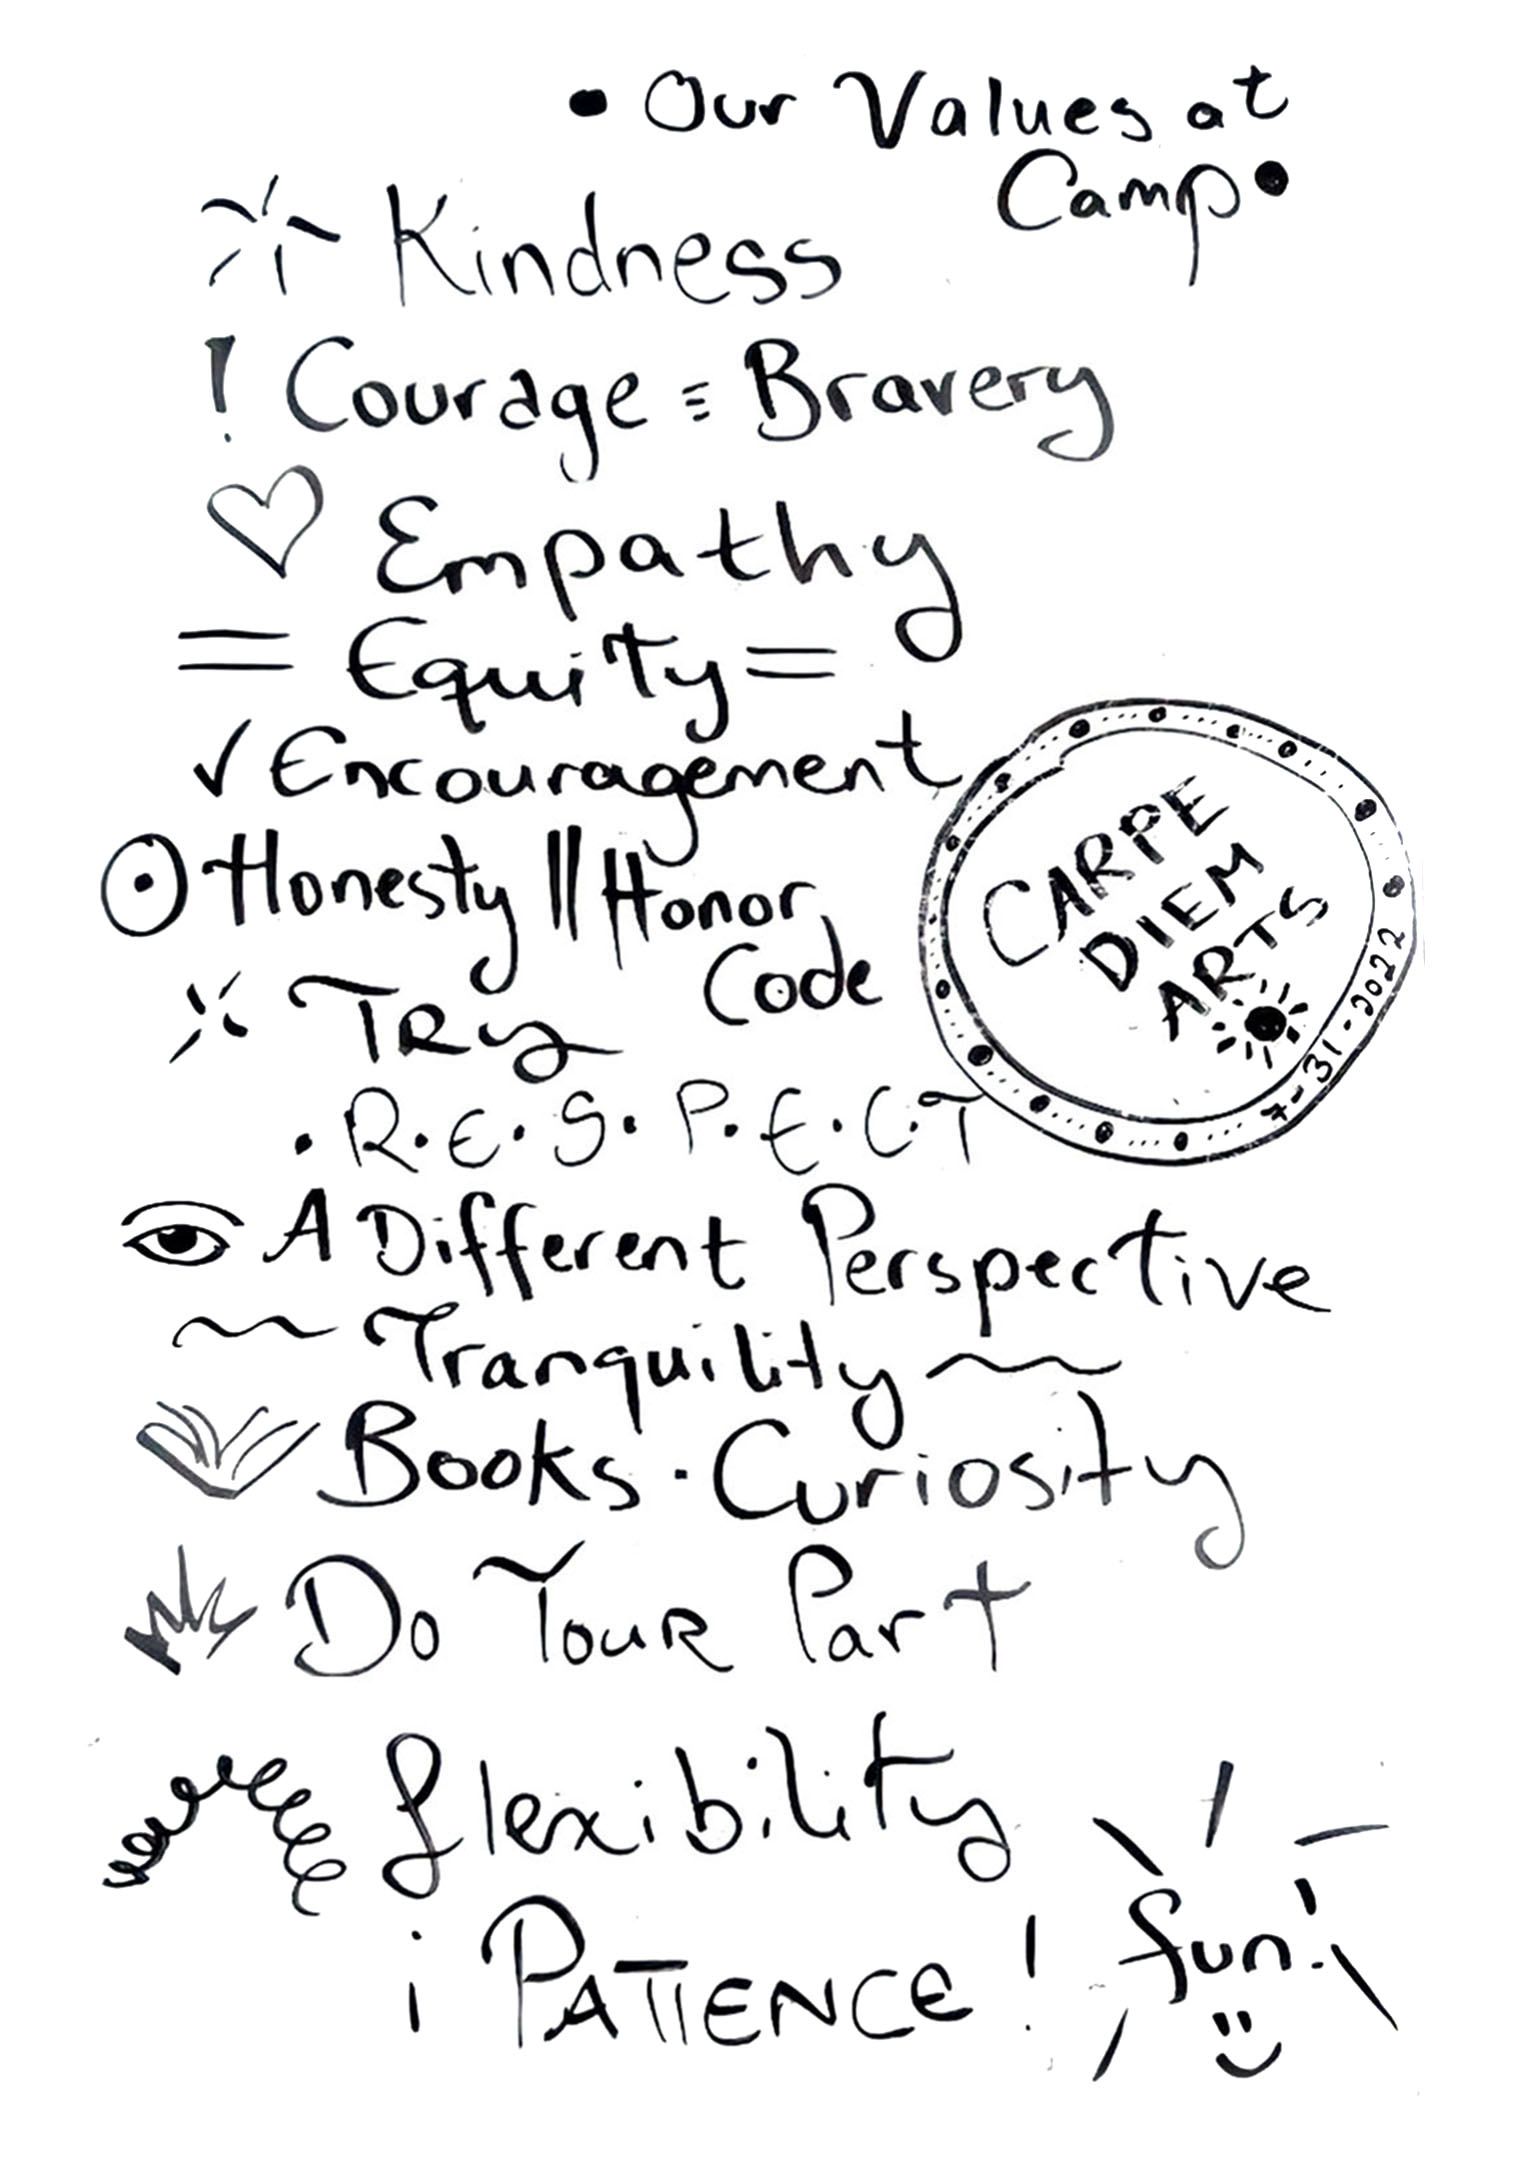 • Our Values at
Camp •
Kindness
! Courage = Bravery
♡ Empathy
= Equity =
✓ Encouragement
Honesty || Honor
Code
TRy
• R.E.S.P.E.C.T
A Different Perspective
~ Tranquility ~
Books · Curiosity
Do Your Part
flexibility
¡ PATIENCE !
fun!
CARPE
DIEM
ARTS
7-31-2022